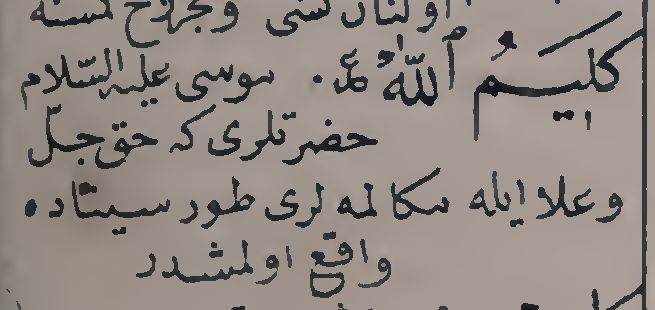 اولنان نسنى ومجروح نسنه
كَلِيمُ اللّٰهُ ع‍م. موسى عليه السّلام
حضرتلرى كه حق جلّ
وعلا ايله مكالمه لرى طور سيناده
واقع اولمشدر